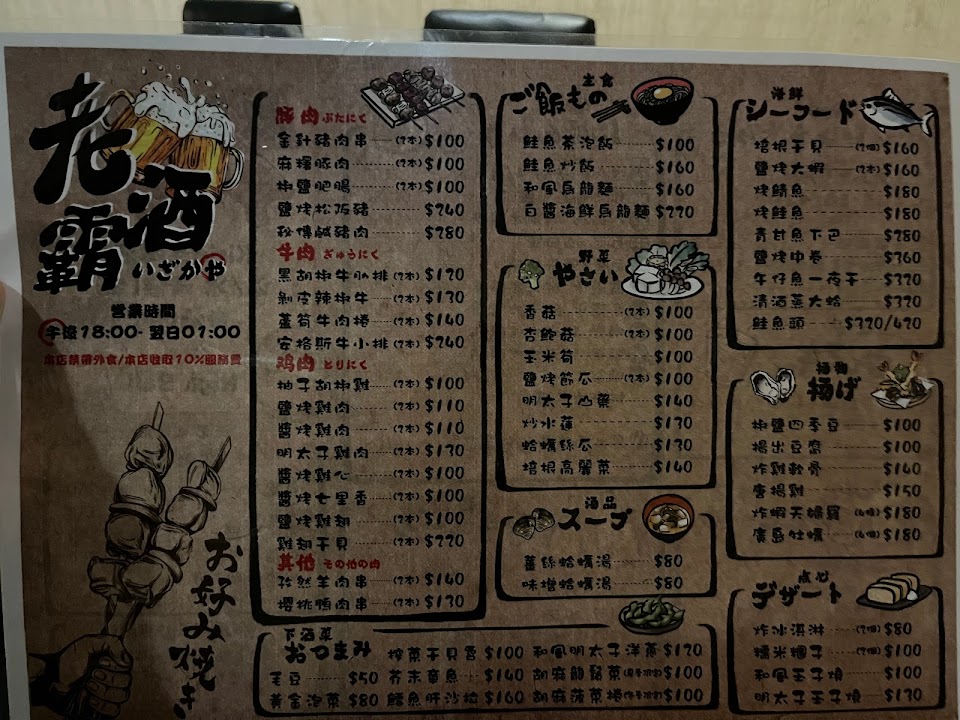 老酒霸
いざかや
營業時間
午後18:00-翌日01:00
本店禁帶外食/本店收取10%服務費
お好み焼き
豚肉 ぶたにく
金針豬肉串 (2本) $100
麻糬豚肉 (2本) $100
椒鹽肥腸 (2本) $100
鹽烤松阪豬 $240
秘傳鹹豬肉 $280
牛肉 ぎゅうにく
黑胡椒牛小排 (2本) $120
剝皮辣椒牛 (2本) $130
蘆筍牛肉捲 (2本) $140
安格斯牛小排 (2本) $240
鸡肉 とりにく
柚子胡椒雞 (2本) $100
鹽烤雞肉 (2本) $110
醬烤雞肉 (2本) $110
明太子雞肉 (2本) $130
醬烤雞心 (2本) $100
醬烤七里香 (2本) $100
鹽烤雞翅 (2本) $100
雞翅干貝 (2本) $220
其他 その他の肉
孜然羊肉串 (2本) $140
櫻桃鴨肉串 (2本) $130
主食
ご飯もの
鮭魚茶泡飯 $100
鮭魚炒飯 $160
和風烏龍麵 $160
白醬海鮮烏龍麵 $220
野菜
やさい
香菇 (2本) $100
杏鮑菇 (2本) $100
玉米筍 $100
鹽烤節瓜 (2本) $100
明太子山藥 $140
炒水蓮 $130
蛤蠣絲瓜 $130
培根高麗菜 $140
湯品
スープ
薑絲蛤蠣湯 $80
味增蛤蠣湯 $80
海鮮
シーフード
培根干貝 (2個) $160
鹽烤大蝦 (2本) $160
烤鯖魚 $180
烤鮭魚 $180
青甘魚下巴 $280
鹽烤中卷 $360
午仔魚一夜干 $320
清酒蒸大蛤 $320
鮭魚頭 $320/420
揚物
揚げ
椒鹽四季豆 $100
揚出豆腐 $100
炸雞軟骨 $140
唐揚雞 $150
炸蝦天婦羅 $180
廣島牡蠣 $180
点心
デザート
炸冰淇淋 (2個) $80
糯米糰子 (2個) $100
和風玉子燒 $100
明太子玉子燒 $130
下酒菜
おつまみ
毛豆 $50
黃金泡菜 $80
榨菜干貝唇 $100
芥末章魚 $140
鱈魚肝沙拉 $160
和風明太子洋蔥 $120
胡麻龍鬚菜 $100
胡麻菠菜捲 $100